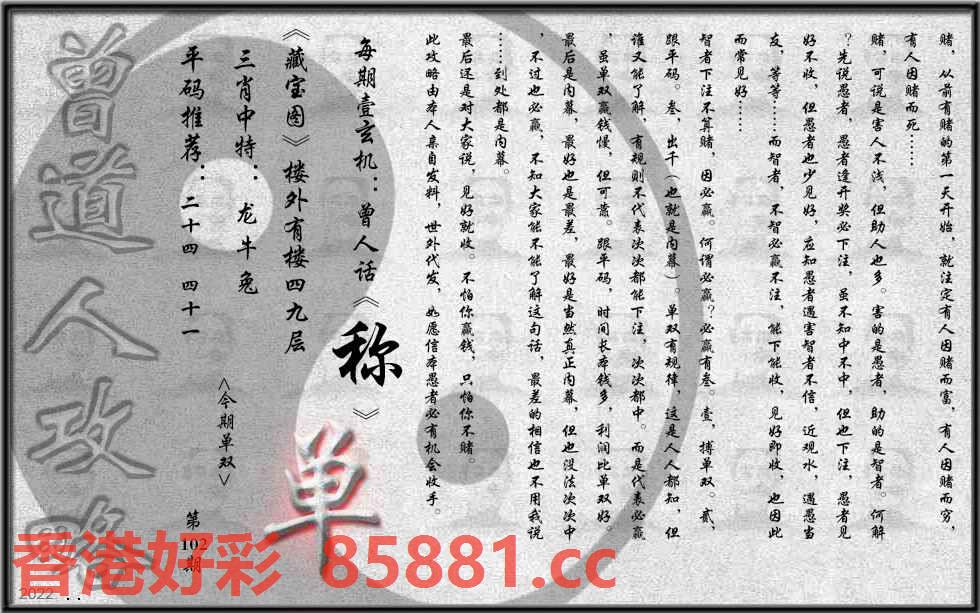 赌，从前有赌的第一天开始，就注定有人因赌而富，有人因赌而穷，
有人因赌而死……
赌，可说是害人不浅，但助人也多。害的是愚者，助的是智者。何解
？先说愚者，愚者逢开奖必下注，虽不知中不中，但也下注，愚者见
好不收，但愚者也少见好，应知愚者遇害智者不信，近观水，遇愚当
友，等等……而智者，不智必赢不注，能下能收，见好即收，也因此
而常见好……
智者下注不算赌，因必赢。何谓必赢？必赢有叁。壹，搏单双。贰，
跟平码。叁，出千（也就是内幕）。单双有规律，这是人人都知，但
谁又能了解，有规则不代表次次都能下注，次次都中。而是代表必赢
，虽单双赢钱慢，但可靠。跟平码，时间长本钱多，利润比单双好。
最后是内幕，最好也是最差，最好是当然真正内幕，但也没法次次中
，不过也必赢，不知大家能不能了解这句话，最差的相信也不用我说
……到处都是内幕。
最后还是对大家说，见好就收。不怕你赢钱，只怕你不赌。
此攻略由本人亲自发料，世外代发，如愿信本愚者必有机会收手。
每期壹玄机：曾人话《称》
《藏宝图》楼外有楼四九层
三肖中特：龙牛兔
平码推荐：二十四 四十一
<今期单双>
单
第102期
曾道人攻略
香港好彩 85881.cc
2022